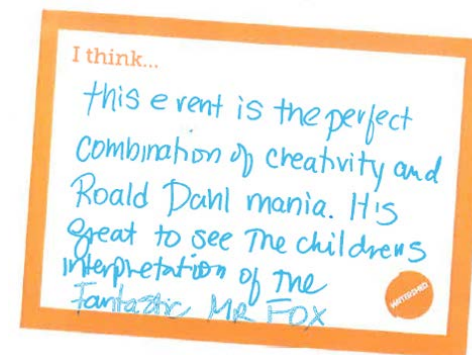 I think...
this event is the perfect
combination of creativity and
Roald Dahl mania. It's
great to see The childrens
interpretation of the
Fantastic MR FOX